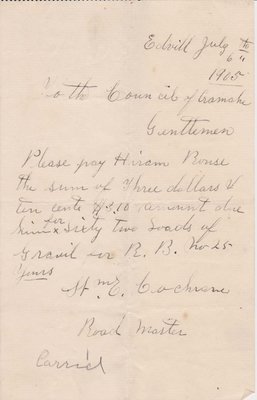 Edvill July 10
6th
1905
To the Council of Cramahe
Gentlemen
Please pay Hiram Rouse
the sum of Three dollars &
ten cents $3.10 amount due
him for sixty two loads of
Gravil on R. B. No 25
Yours
Wm E. Cochrane
Road Master
Carried